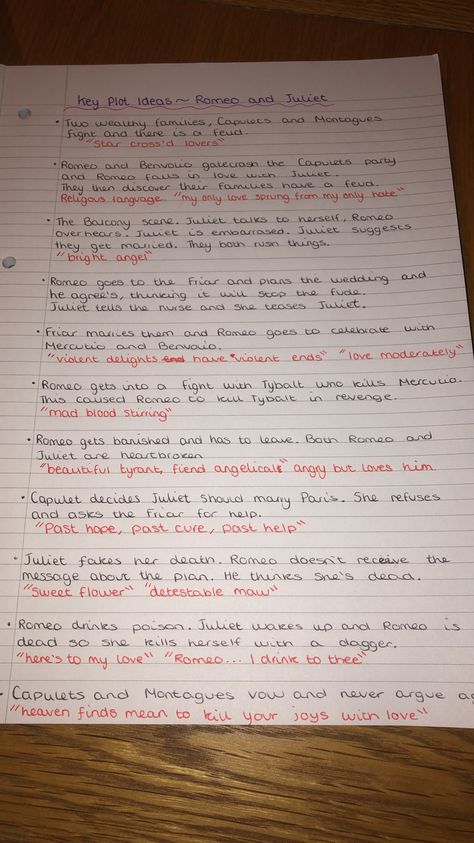 Key Plot Ideas ~ Romeo and Juliet
• Two wealthy families, Capulets and Montagues
fight and there is a feud.
"Star cross'd lovers"
• Romeo and Benvolio gatecrash the Capulets party
and Romeo falls in love with Juliet.
They then discover their families have a feud.
Religous language. "my only love sprung from my only hate"
• The Balcony scene. Juliet talks to herself, Romeo
overhears. Juliet is embarrased. Juliet suggests
they get married. They both rush things.
"bright angel"
• Romeo goes to the Friar and plans the wedding and
he agree's, thinking it will stop the fude.
Juliet tells the nurse and she teases Juliet.
• Friar marries them and Romeo goes to celebrate with
Mercutio and Benvolio.
"violent delights have violent ends" "love moderately"
• Romeo gets into a fight with Tybalt who kills Mercutio.
This caused Romeo to kill Tybalt in revenge.
"mad blood stirring"
• Romeo gets banished and has to leave. Both Romeo and
Juliet are heartbroken
"beautiful tyrant, fiend angelical" angry but loves him.
• Capulet decides Juliet should marry Paris. She refuses
and asks the Friar for help.
"Past hope, past cure, past help"
• Juliet fakes her death. Romeo doesn't receive the
message about the plan. He thinks she's dead.
"Sweet flower" "detestable maw"
• Romeo drinks poison. Juliet wakes up and Romeo is
dead so she kills herself with a dagger.
"here's to my love" "Romeo... I drink to thee"
• Capulets and Montagues vow and never argue ag
"heaven finds mean to kill your joys with love"